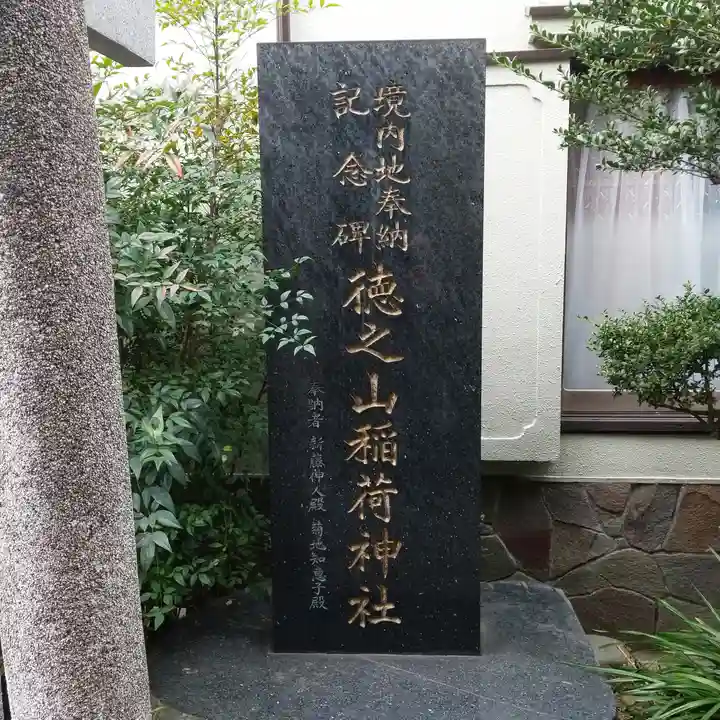 境内地奉納
記念碑
徳之山稲荷神社
奉納者 新藤伸人殿 菊地知意子殿